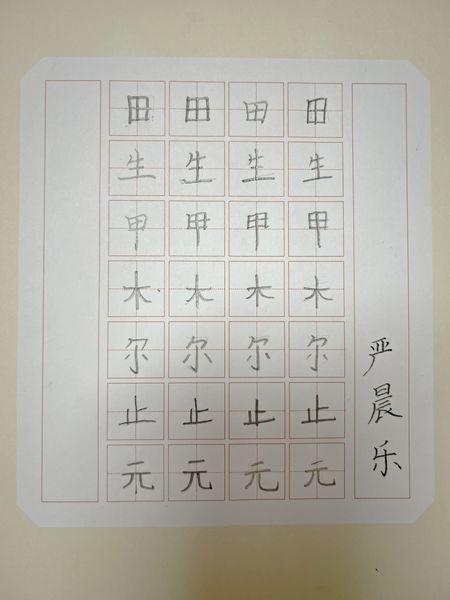 田田田田
生生生生
甲甲甲甲
木木木木
尔尔尔尔
止止止止
元元元元
严晨乐